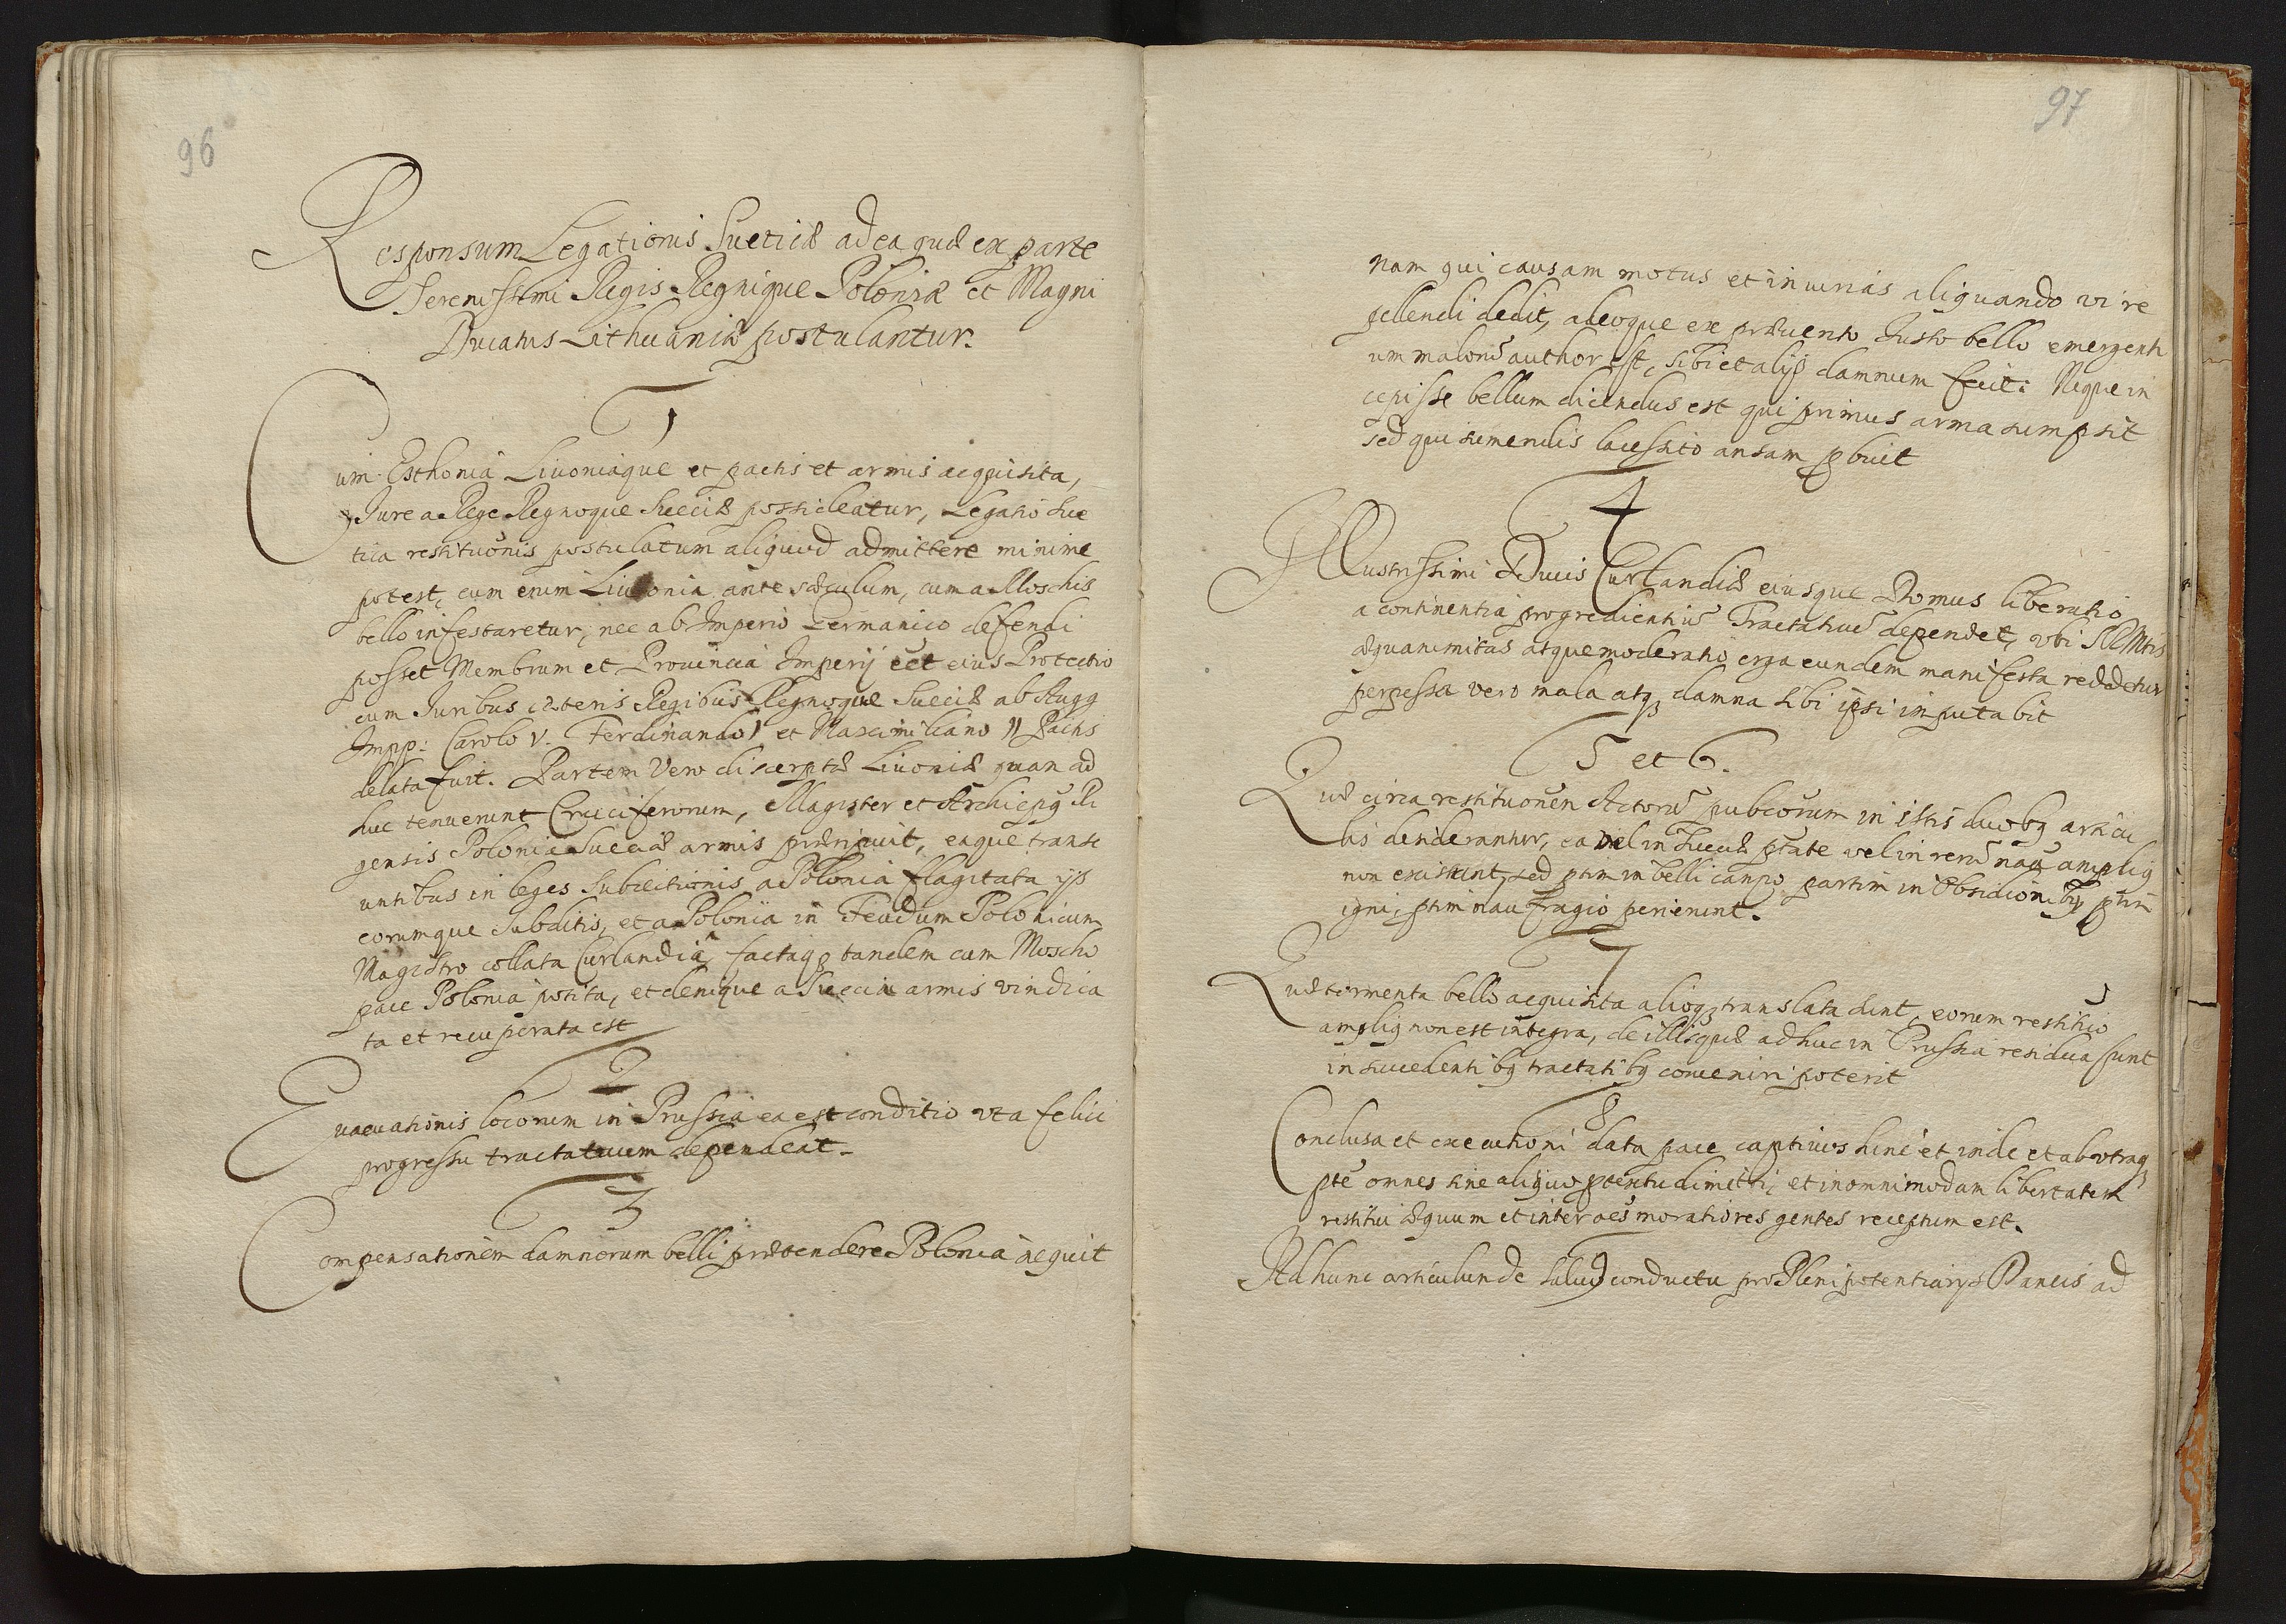 96
Responsum Legationis Sueticæ ad ea quæ ex parte
Serenissimi Regis Regnique Poloniæ et Magni
Ducatus Lithuaniæ postulantur.
1
Cum Esthonia Livoniaque et pactis et armis acquisita,
Jure a Rege Regnoque Sueciæ possideatur, Legatio Sue
tica restituōnis postulatum aliquod admittere minime
potest, cum enim Livonia ante sæculum, cum a Moschis
bello infestaretur, nec ab Imperio Germanico defendi
posset Membrum et Provincia Imperij eēt eius Protectio
cum Juribus cæteris Regibus Regnoque Sueciæ ab Augg
Impp: Carolo V. Ferdinando 1 et Maximiliano II Pactis
delata fuit. Partem Vero discerptæ Livoniæ quam ad
huc tenuerunt Cruciferorum, Magister et Archiepῳ Ri
gensis Polonia Sueciæ armis præripuit, eaque transe
untibus in leges Subiectionis a Polonia flagitata ijs
eorumque Subditis, et a Polonia in Feudum Polonicum
Magistro collata Curlandia, factaqꝫ tandem cum Moscho
pace Polonia potita, et denique a Suecia armis vindica
ta et recuperata est
2
Evacuationis locorum in Prussia ea est conditio vt a felici
progressu tractatuum dependeat.
3
Compensationem damnorum belli prætendere Polonia nequit
97
nam qui causam motus et iniurias aliquando vi re
pellendi dedit, adeoque ex prævento Justo bello emergenti
um malorū author est, sibi et alijs damnum fecit: Neque in
cepisse bellum dicendus est qui primus arma sumpsit
sed qui sumendis lacessito ansam pbuit
4
Illustrissimi Ducis Curlandiæ eiusque Domus liberatio
a continentia progredientiū Tractatuū dependet, vbi SRMtis
æquanimitas atque moderatio erga eundem manifesta reddetur
perpessa vero mala atqꝫ damna sibi ipsi imputabit
5 et 6.
Quæ circa restituōnem Actorū publcorum in istis duobꝫ articu
lis desiderantur, ea vel in Sueciæ ptate vel in rerū nāa ampliꝫ
non existunt, sed ptim in belli campo partim in Obsidionibꝫ ptim
igni, ptim naufragio perierunt.
7
Quæ tormenta bello acquisita alioqꝫ translata sunt, eorum restitūo
ampliꝫ non est integra, de illis quæ adhuc in Prussia residua sunt
in succedentibꝫ tractatibꝫ conveniri poterit
8
Conclusa et executioni data pace captivos hinc et inde et ab vtraqꝫ
pte omnes sine aliquo ptextu dimitti, et in omnimodam libertatem
restitui æquum et inter oēs moratiores gentes receptum est.
9
Ad hunc articulum de salvo conductu pro Plenipotentiarijs Danicis ad